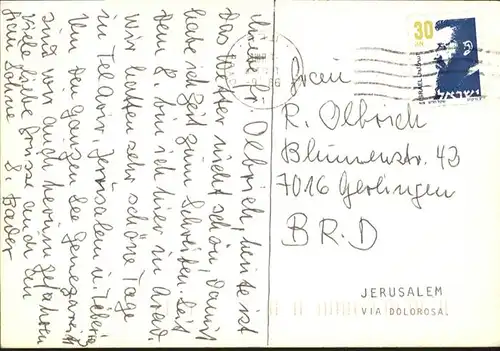 Liebe Fr. Olbrich, heute ist
das Wetter nicht schön, damit
habe ich Zeit zum Schreiben. Seit
dem 8. bin ich hier in Arad.
Wir hatten sehr schöne Tage
in Tel Aviv, Jerusalem u.
Um den ganzen See Genezareth
sind wir auch herum gefahren
Viele liebe Grüsse auch an
Ihre Söhne S. Bader
30
ישראל
Frau
R. Olbrich
Blumenstr. 43
7016 Gerlingen
B R. D
JERUSALEM
VIA DOLOROSA.